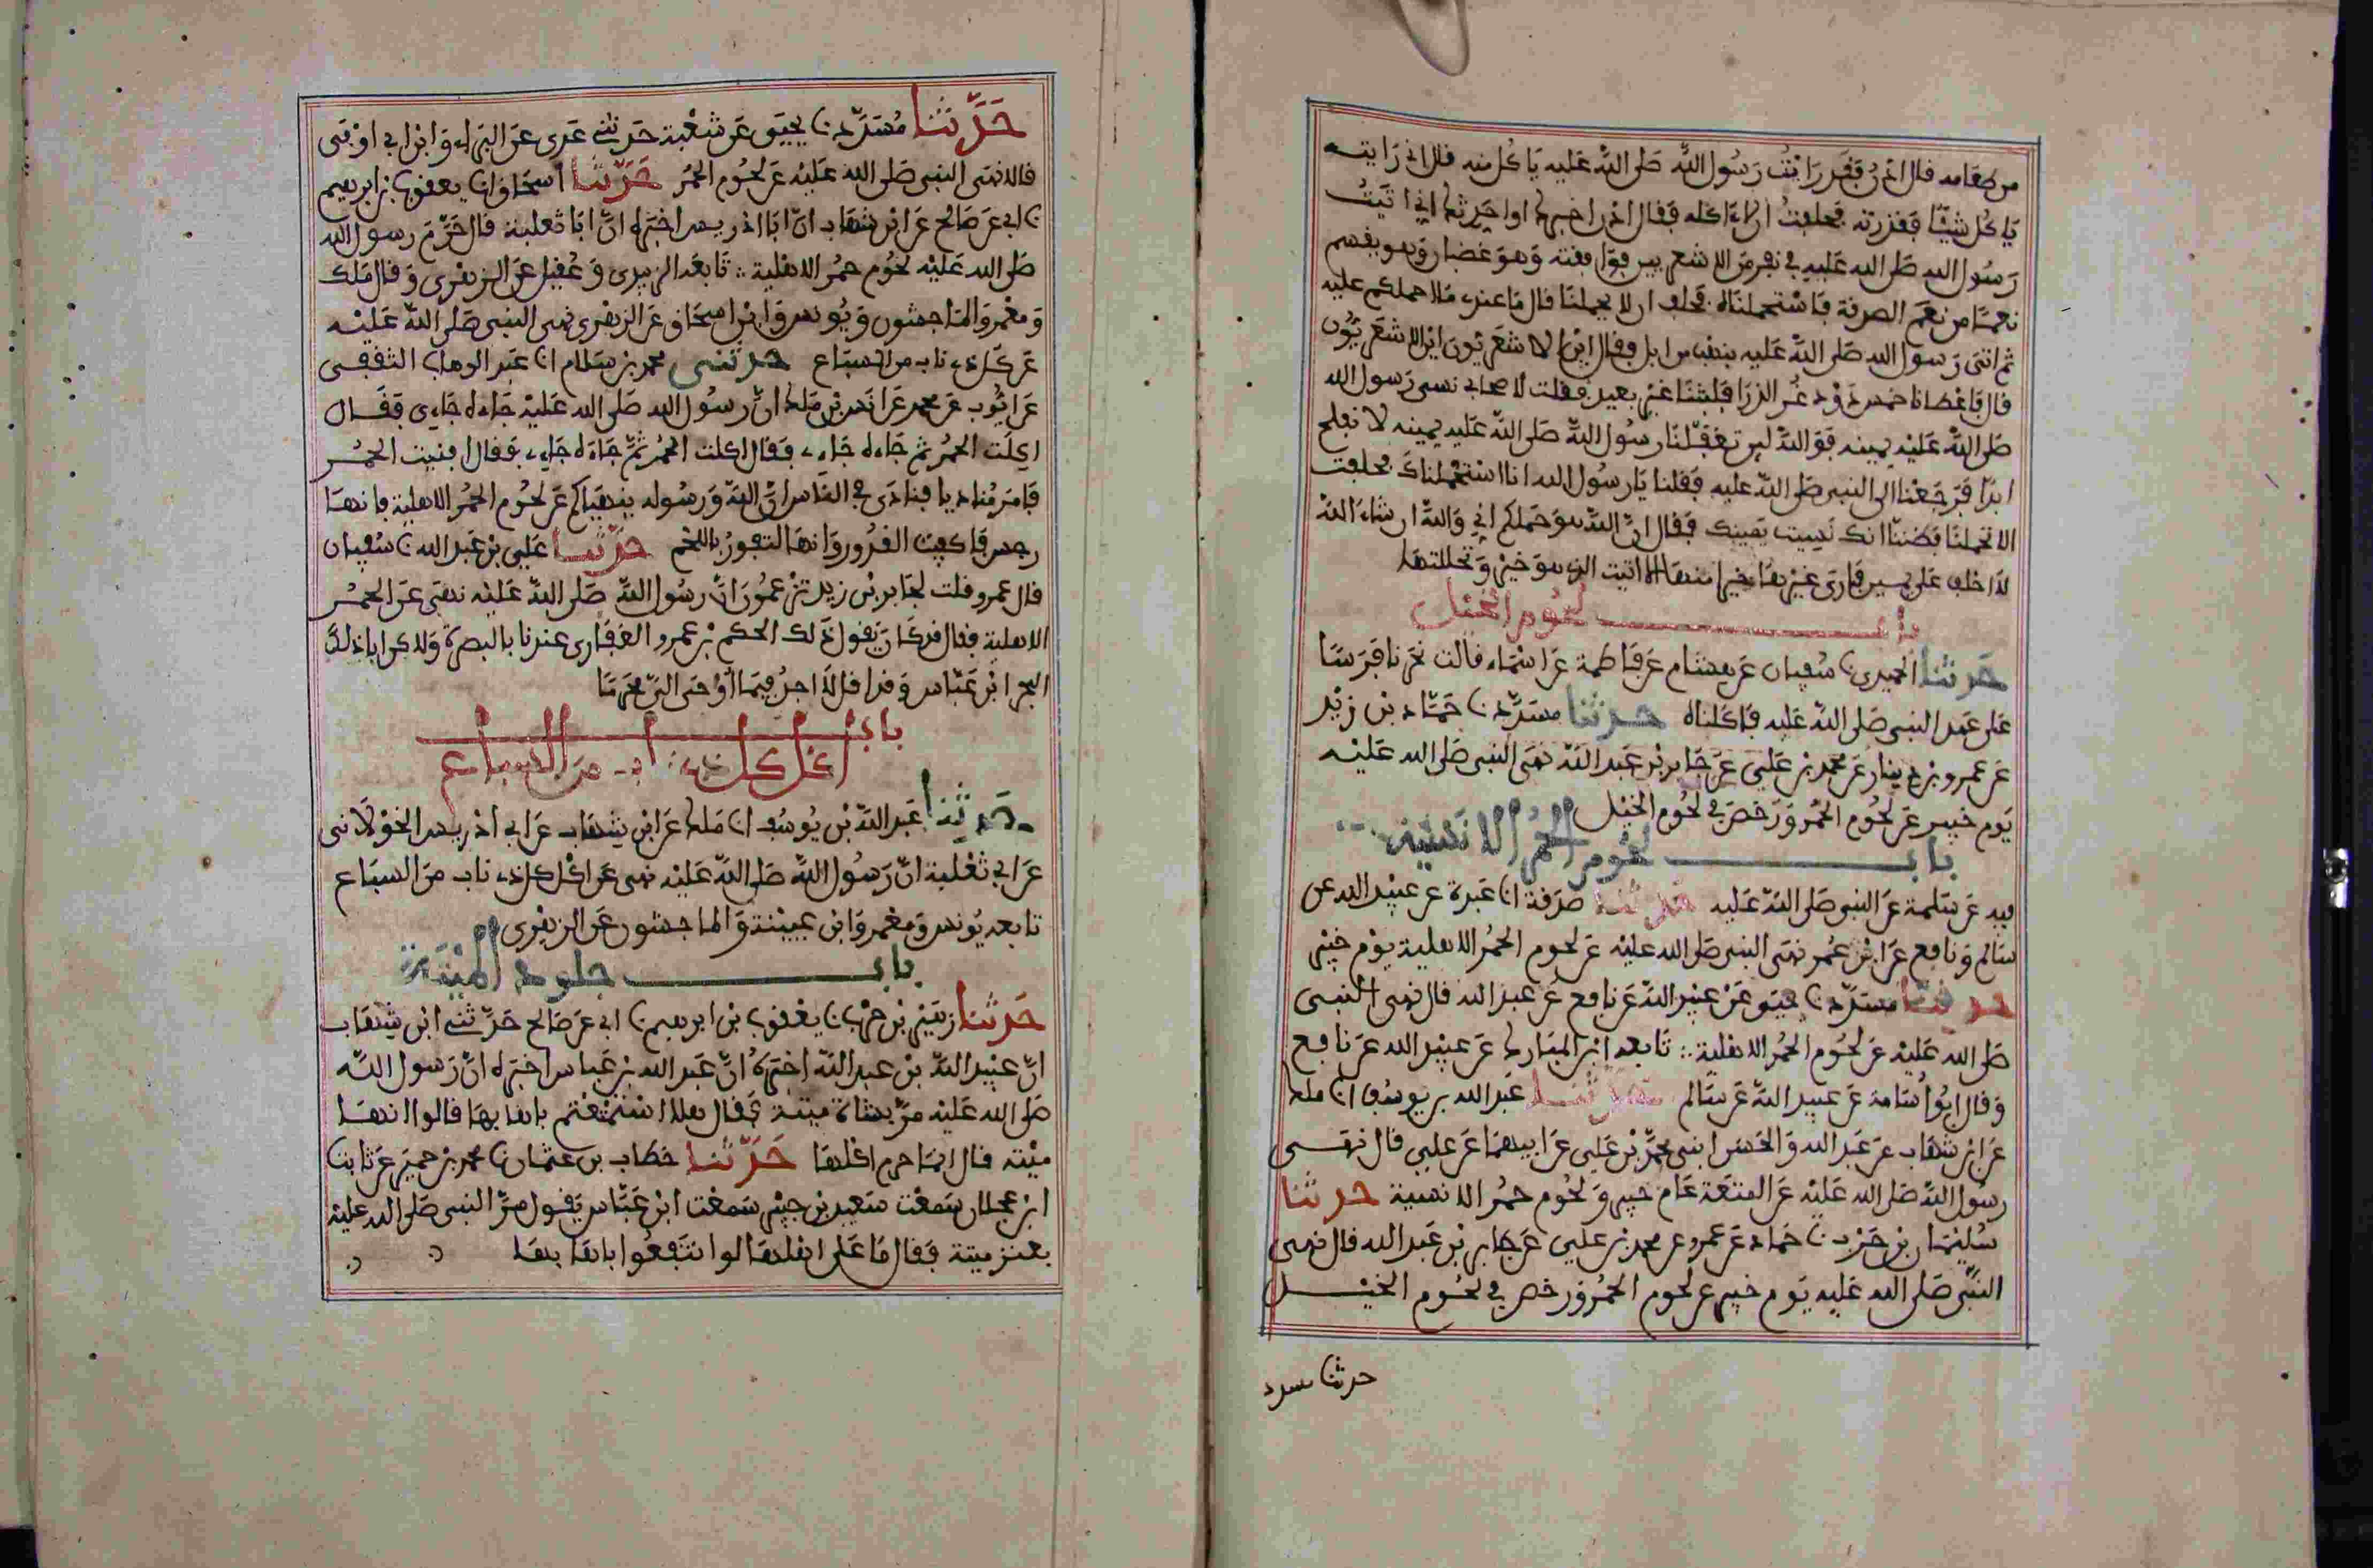 من طعامه فال ادن فقد رايت رسول الله صلى الله عليه ياكل منه فال انى رايته
ياكل شيئا فقذرته فحلفت ان لا اكله فقال ادن اخبرك او احدثك اني اتيت
رسول الله صلى الله عليه في نفر من الاشعريين فوافقته وهو غضبان وهو يقسم
نعما من نعم الصدقة فاستحملناه فحلف ان لا يحملنا فال ما عندي ما احملكم عليه
ثم اتى رسول الله صلى الله عليه بنهب من ابل فقال اين الاشعريون اين الاشعريون
فال فاعطانا خمس ذود غر الذرا فلبثنا غير بعيد فقلت لاصحابي نسى رسول الله
صلى الله عليه يمينه فوالله لين تغفلنا رسول الله صلى الله عليه يمينه لا نفلح
ابدا فرجعنا الى النبي صلى الله عليه فقلنا يا رسول الله انا استحملناك فحلفت
الا تحملنا فظننا انك نسيت يمينك فقال ان الله هو حملكم اني والله ان شاء الله
لا احلف على يمين فارى غيرها خيرا منها الا اتيت الذي هو خير وتحللتها
باب لحوم الخيل
حدثنا الحميدي نا سفيان عن هشام عن فاطمة عن اسماء فالت نحرنا فرسا
على عهد النبي صلى الله عليه فاكلناه حدثنا مسدد نا حماد بن زيد
عن عمرو بن دينار عن محمد بن علي عن جابر بن عبد الله نهى النبي صلى الله عليه
يوم خيبر عن لحوم الحمر ورخص في لحوم الخيل
باب لحوم الحمر الانسية
فيه عن سلمة عن النبي صلى الله عليه حدثنا صدقة انا عبدة عن عبيد الله عن
سالم ونافع عن ابن عمر نهى النبي صلى الله عليه عن لحوم الحمر الاهلية يوم خيبر
حدثنا مسدد نا يحيى عن عبيد الله عن نافع عن عبد الله فال نهى النبي
صلى الله عليه عن لحوم الحمر الاهلية تابعه ابن المبارك عن عبيد الله عن نافع
وفال ابو اسامة عن عبيد الله عن سالم حدثنا عبد الله بن يوسف انا ملك
عن ابن شهاب عن عبد الله والحسن ابني محمد بن علي عن ابيهما عن علي فال نهى
رسول الله صلى الله عليه عن المتعة عام خيبر ولحوم حمر الانسية حدثنا
سليمان بن حرب نا حماد عن عمرو عن محمد بن علي عن جابر بن عبد الله فال نهى
النبي صلى الله عليه يوم خيبر عن لحوم الحمر ورخص في لحوم الخيل
حدثنا مسدد
حدثنا مسدد نا يحيى عن شعبة حدثني عدي عن البراء وابن ابي اوفى
فالا نهى النبي صلى الله عليه عن لحوم الحمر حدثنا اسحاق انا يعقوب بن ابرهيم
نا ابي عن صالح عن ابن شهاب ان ابا ادريس اخبره ان ابا ثعلبة فال حرم رسول الله
صلى الله عليه لحوم حمر الاهلية تابعه الزبيدي وعقيل عن الزهري وفال ملك
ومعمر والماجشون ويونس وابن اسحاق عن الزهري نهى النبي صلى الله عليه
عن كل ذي ناب من السباع حدثني محمد بن سلام انا عبد الوهاب الثقفي
عن ايوب عن محمد عن انس بن ملك ان رسول الله صلى الله عليه جاءه جاءي فقال
اكلت الحمر ثم جاءه جاءي فقال اكلت الحمر ثم جاءه جاءي فقال افنيت الحمر
فامر مناديا فنادى في الناس ان الله ورسوله ينهياكم عن لحوم الحمر الاهلية فانها
رجس فاكفت القدور وانها لتفور باللحم حدثنا علي بن عبد الله نا سفيان
فال عمرو فلت لجابر بن زيد تزعمون ان رسول الله صلى الله عليه نهى عن الحمر
الاهلية فقال قد كان يقول ذلك الحكم بن عمرو الغفاري عندنا بالبصرة ولاكن ابا ذلك
البحر ابن عباس وقرا قل لا اجد فيما اوحى الي محرما
باب
اكل كل ذي ناب من السباع
حدثنا عبد الله بن يوسف انا ملك عن ابن شهاب عن ابي ادريس الخولاني
عن ابي ثعلبة ان رسول الله صلى الله عليه نهى عن اكل كل ذي ناب من السباع
تابعه يونس ومعمر وابن عيينة والماجشون عن الزهري
باب جلود الميتة
حدثنا زهير بن حرب نا يعقوب بن ابرهيم نا ابي عن صالح حدثني ابن شهاب
ان عبيد الله بن عبد الله اخبره ان عبد الله بن عباس اخبره ان رسول الله
صلى الله عليه مر بشاة ميتة فقال هلا استمتعتم باهابها فالوا انها
ميتة فال انما حرم اكلها حدثنا خطاب بن عثمان نا محمد بن حمير عن ثابت
ابن عجلان سمعت سعيد بن جبير سمعت ابن عباس يقول مر النبي صلى الله عليه
بعنز ميتة فقال ما على اهلها لو انتفعوا باهابها